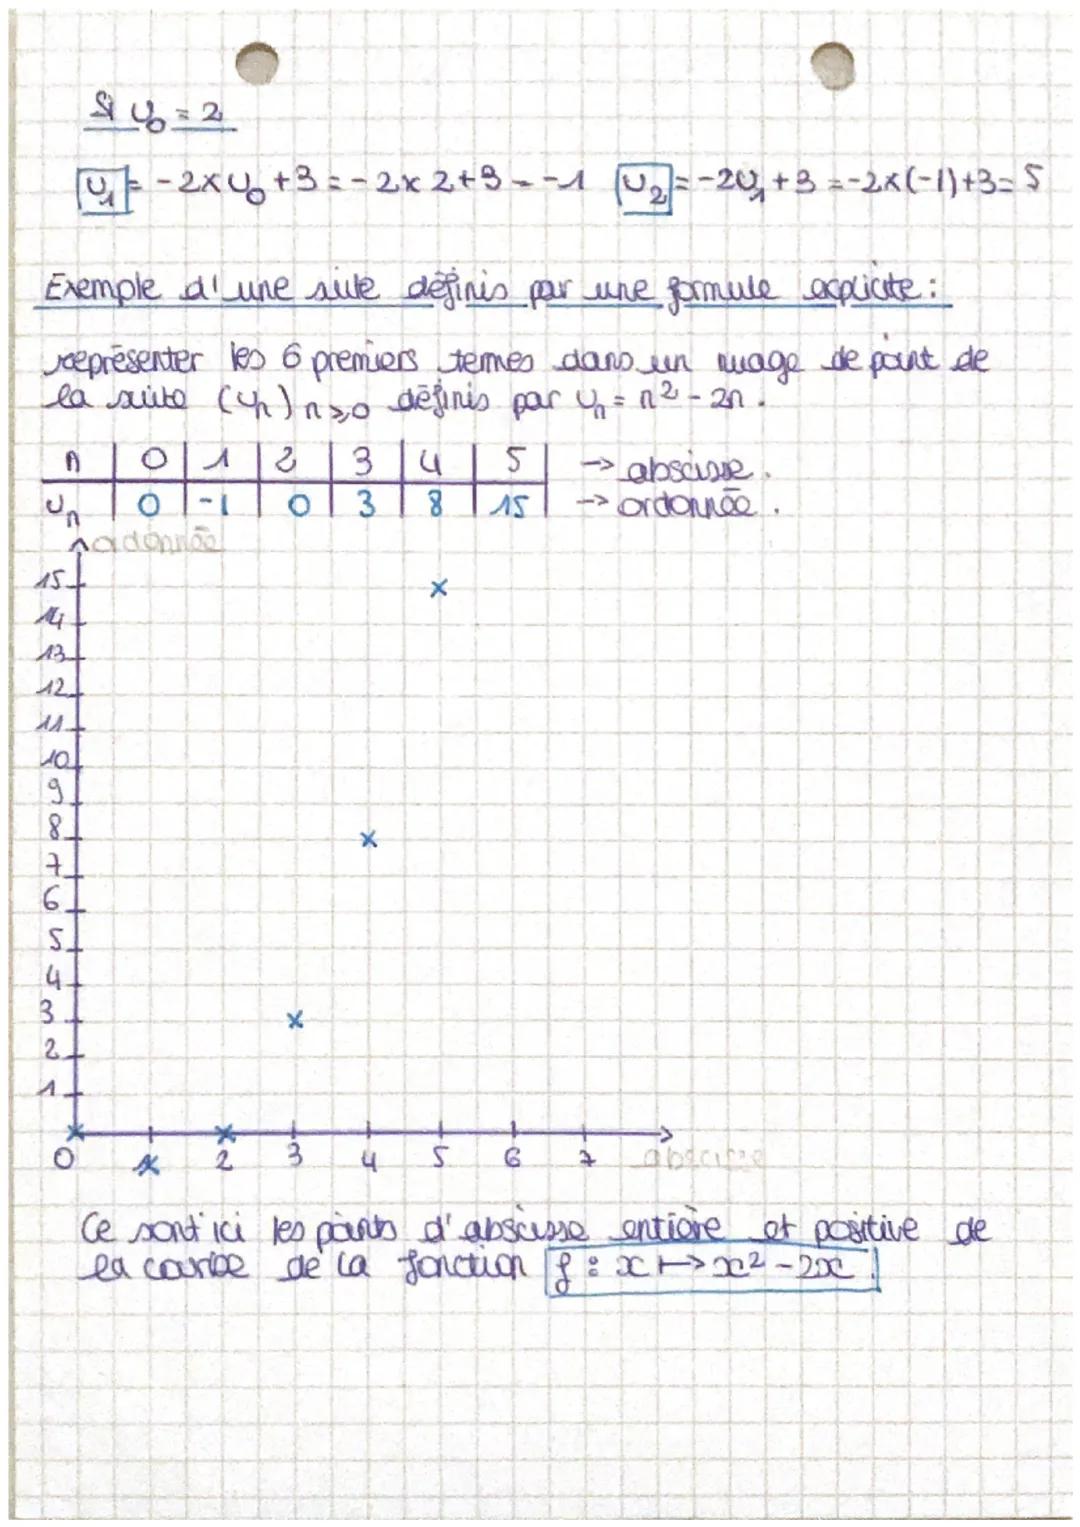 Si U₀ = 2
U₁ = -2×U₀ +3 = -2×2+3 = -1 U₂ = -2U₁ +3 = -2×(-1)+3 = 5
Exemple d'une suite définis par une formule explicite :
représenter les 6 premiers termes dans un nuage de point de
la suite (Uₙ) n≥0 définis par Uₙ = n² - 2n.
n 0 1 2 3 4 5 -> abscisse.
Uₙ 0 -1 0 3 8 15 -> ordonnée.
ordonnée
15
14
13
12
11
10
9
8
7
6
5
4
3
2
1
0 1 2 3 4 5 6 7 abscisse
Ce sont ici les points d'abscisse entière et positive de
la courbe de la fonction f : x ↦ x² - 2x.